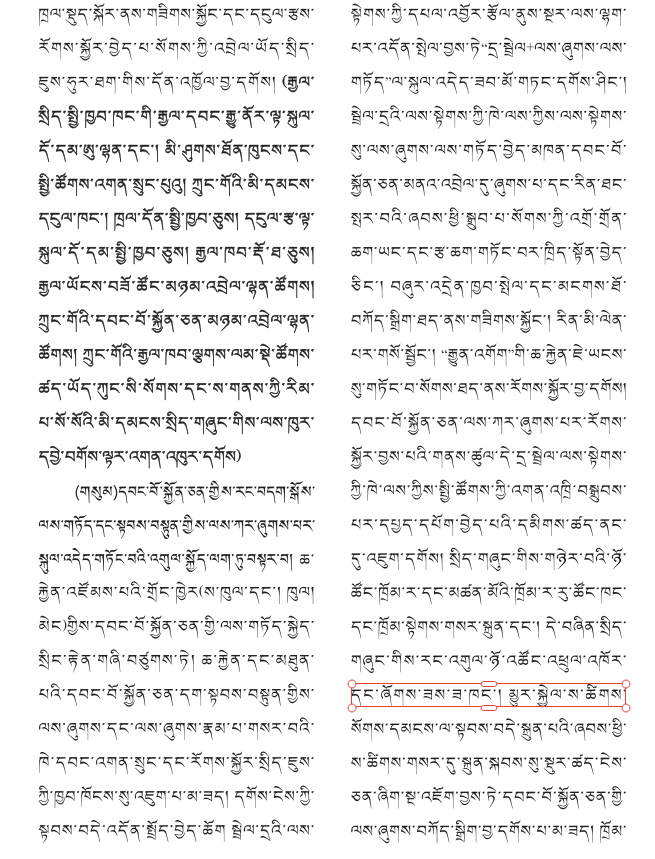 ཁྲལ་སྡུད་སྐོར་ནས་གཟིགས་སྐྱོང་དང་དངུལ་རྩས་
རོགས་སྐྱོར་བྱེད་པ་སོགས་ཀྱི་འབྲེལ་ཡོད་སྲིད་
ཇུས་ཧུར་ཐག་གིས་དོན་འཁྱོལ་བྱ་དགོས། (རྒྱལ་
སྲིད་སྤྱི་ཁྱབ་ཁང་གི་རྒྱལ་དབང་རྒྱུ་ནོར་ལྟ་སྐུལ་
དོ་དམ་ཨུ་ལྷན་དང་། མི་ཤུགས་ཐོན་ཁུངས་དང་
སྤྱི་ཚོགས་འགན་སྲུང་པུའུ། ཀྲུང་གོའི་མི་དམངས་
དངུལ་ཁང་། ཁྲལ་དོན་སྤྱི་ཁྱབ་ཅུས། དངུལ་རྩ་ལྟ་
སྐུལ་དོ་དམ་སྤྱི་ཁྱབ་ཅུས། རྒྱལ་ཁབ་རྡོ་ཐ་ཅུས།
རྒྱལ་ཡོངས་བཟོ་ཚོང་མཉམ་འབྲེལ་ལྷན་ཚོགས།
ཀྲུང་གོའི་དབང་པོ་སྐྱོན་ཅན་མཉམ་འབྲེལ་ལྷན་
ཚོགས། ཀྲུང་གོའི་རྒྱལ་ཁབ་ལྕགས་ལམ་སྡེ་ཚོགས་
ཚད་ཡོད་ཀུང་སི་སོགས་དང་ས་གནས་ཀྱི་རིམ་
པ་སོ་སོའི་མི་དམངས་སྲིད་གཞུང་གིས་ལས་ཁུར་
དབྱེ་བགོས་ལྟར་འགན་འཁུར་དགོས)
(གསུམ)དབང་པོ་སྐྱོན་ཅན་གྱིས་རང་བདག་སྒོས་
ལས་གཏོད་དང་སྟབས་བསྟུན་གྱིས་ལས་ཀར་ཞུགས་པར་
སྐུལ་འདེད་གཏོང་བའི་འགུལ་སྐྱོད་ལག་ཏུ་བསྟར་བ། ཆ་
རྐྱེན་འཛོམས་པའི་གྲོང་ཁྱེར(ས་ཁུལ་དང་། ཁུལ།
མེང)གྱིས་དབང་པོ་སྐྱོན་ཅན་གྱི་ལས་གཏོད་སྐྱེད་
སྲིང་རྟེན་གཞི་བཙུགས་ཏེ། ཆ་རྐྱེན་དང་མཐུན་
པའི་དབང་པོ་སྐྱོན་ཅན་དག་སྟབས་བསྟུན་གྱིས་
ལས་ཞུགས་དང་ལས་ཞུགས་རྣམ་པ་གསར་བའི་
ཁེ་དབང་འགན་སྲུང་དང་རོགས་སྐྱོར་སྲིད་ཇུས་
ཀྱི་ཁྱབ་ཁོངས་སུ་འཇུག་པ་མ་ཟད། དགོས་ངེས་ཀྱི་
སྟབས་བདེ་འདོན་སྤྲོད་བྱེད་ཆོག སྦྲེལ་དྲའི་ལས་
སྟེགས་ཀྱི་དཔལ་འབྱོར་རྩོལ་ནུས་སྔར་ལས་ལྷག་
པར་འདོན་སྤེལ་བྱས་ཏེ“དྲ་སྦྲེལ+ལས་ཞུགས་ལས་
གཏོད”ལ་སྐུལ་འདེད་ཟབ་མོ་གཏང་དགོས་ཤིང་།
སྦྲེལ་དྲའི་ལས་སྟེགས་ཀྱི་ཁེ་ལས་ཀྱིས་ལས་སྟེགས་
སུ་ལས་ཞུགས་ལས་གཏོད་བྱེད་མཁན་དབང་པོ་
སྐྱོན་ཅན་མནའ་འབྲེལ་དུ་ཞུགས་པ་དང་རིན་ཐང་
སྤར་བའི་ཞབས་ཕྱི་སྒྲུབ་པ་སོགས་ཀྱི་འགྲོ་གྲོན་
ཆག་ཡང་དང་རྩ་ཆག་གཏོང་བར་ཁྲིད་སྟོན་བྱེད་
ཅིང་། བཞུར་འདྲེན་ཁྱབ་སྤེལ་དང་མངགས་ཐོ་
བཀོད་སྒྲིག་ཐད་ནས་གཟིགས་སྐྱོང་། རིན་མི་ལེན་
པར་གསོ་སྦྱོང་། “རྒྱུན་འགོག”གི་ཆ་རྐྱེན་ཇེ་ཡངས་
སུ་གཏོང་བ་སོགས་ཐད་ནས་རོགས་སྐྱོར་བྱ་དགོས།
དབང་པོ་སྐྱོན་ཅན་ལས་ཀར་ཞུགས་པར་རོགས་
སྐྱོར་བྱས་པའི་གནས་ཚུལ་དེ་དྲ་སྦྲེལ་ལས་སྟེགས་
ཀྱི་ཁེ་ལས་ཀྱིས་སྤྱི་ཚོགས་ཀྱི་འགན་འཁྲི་བསྒྲུབས་
པར་དཔྱད་དཔོག་བྱེད་པའི་དམིགས་ཚད་ནང་
དུ་འཇུག་དགོས། སྲིད་གཞུང་གིས་གཉེར་བའི་ཉོ་
ཚོང་ཁྲོམ་ར་དང་མཚན་མོའི་ཁྲོམ་ར་རུ་ཚོང་ཁང་
དང་ཁྲོམ་སྟེགས་གསར་སྐྲུན་དང་། དེ་བཞིན་སྲིད་
གཞུང་གིས་རང་འགུལ་ཉོ་འཚོང་འཕྲུལ་འཁོར་
དང་ཞོགས་ཟས་ཟ་ཁང་། མྱུར་སྐྱེལ་ས་ཚིགས།
སོགས་དམངས་ལ་སྟབས་བདེ་སྐྲུན་པའི་ཞབས་ཕྱི་
ས་ཚིགས་གསར་དུ་སྐྲུན་སྐབས་སུ་སྡུར་ཚད་ངེས་
ཅན་ཞིག་སྔ་འཇོག་བྱས་ཏེ་དབང་པོ་སྐྱོན་ཅན་གྱི་
ལས་ཞུགས་བཀོད་སྒྲིག་བྱ་དགོས་པ་མ་ཟད། ཁྲོམ་